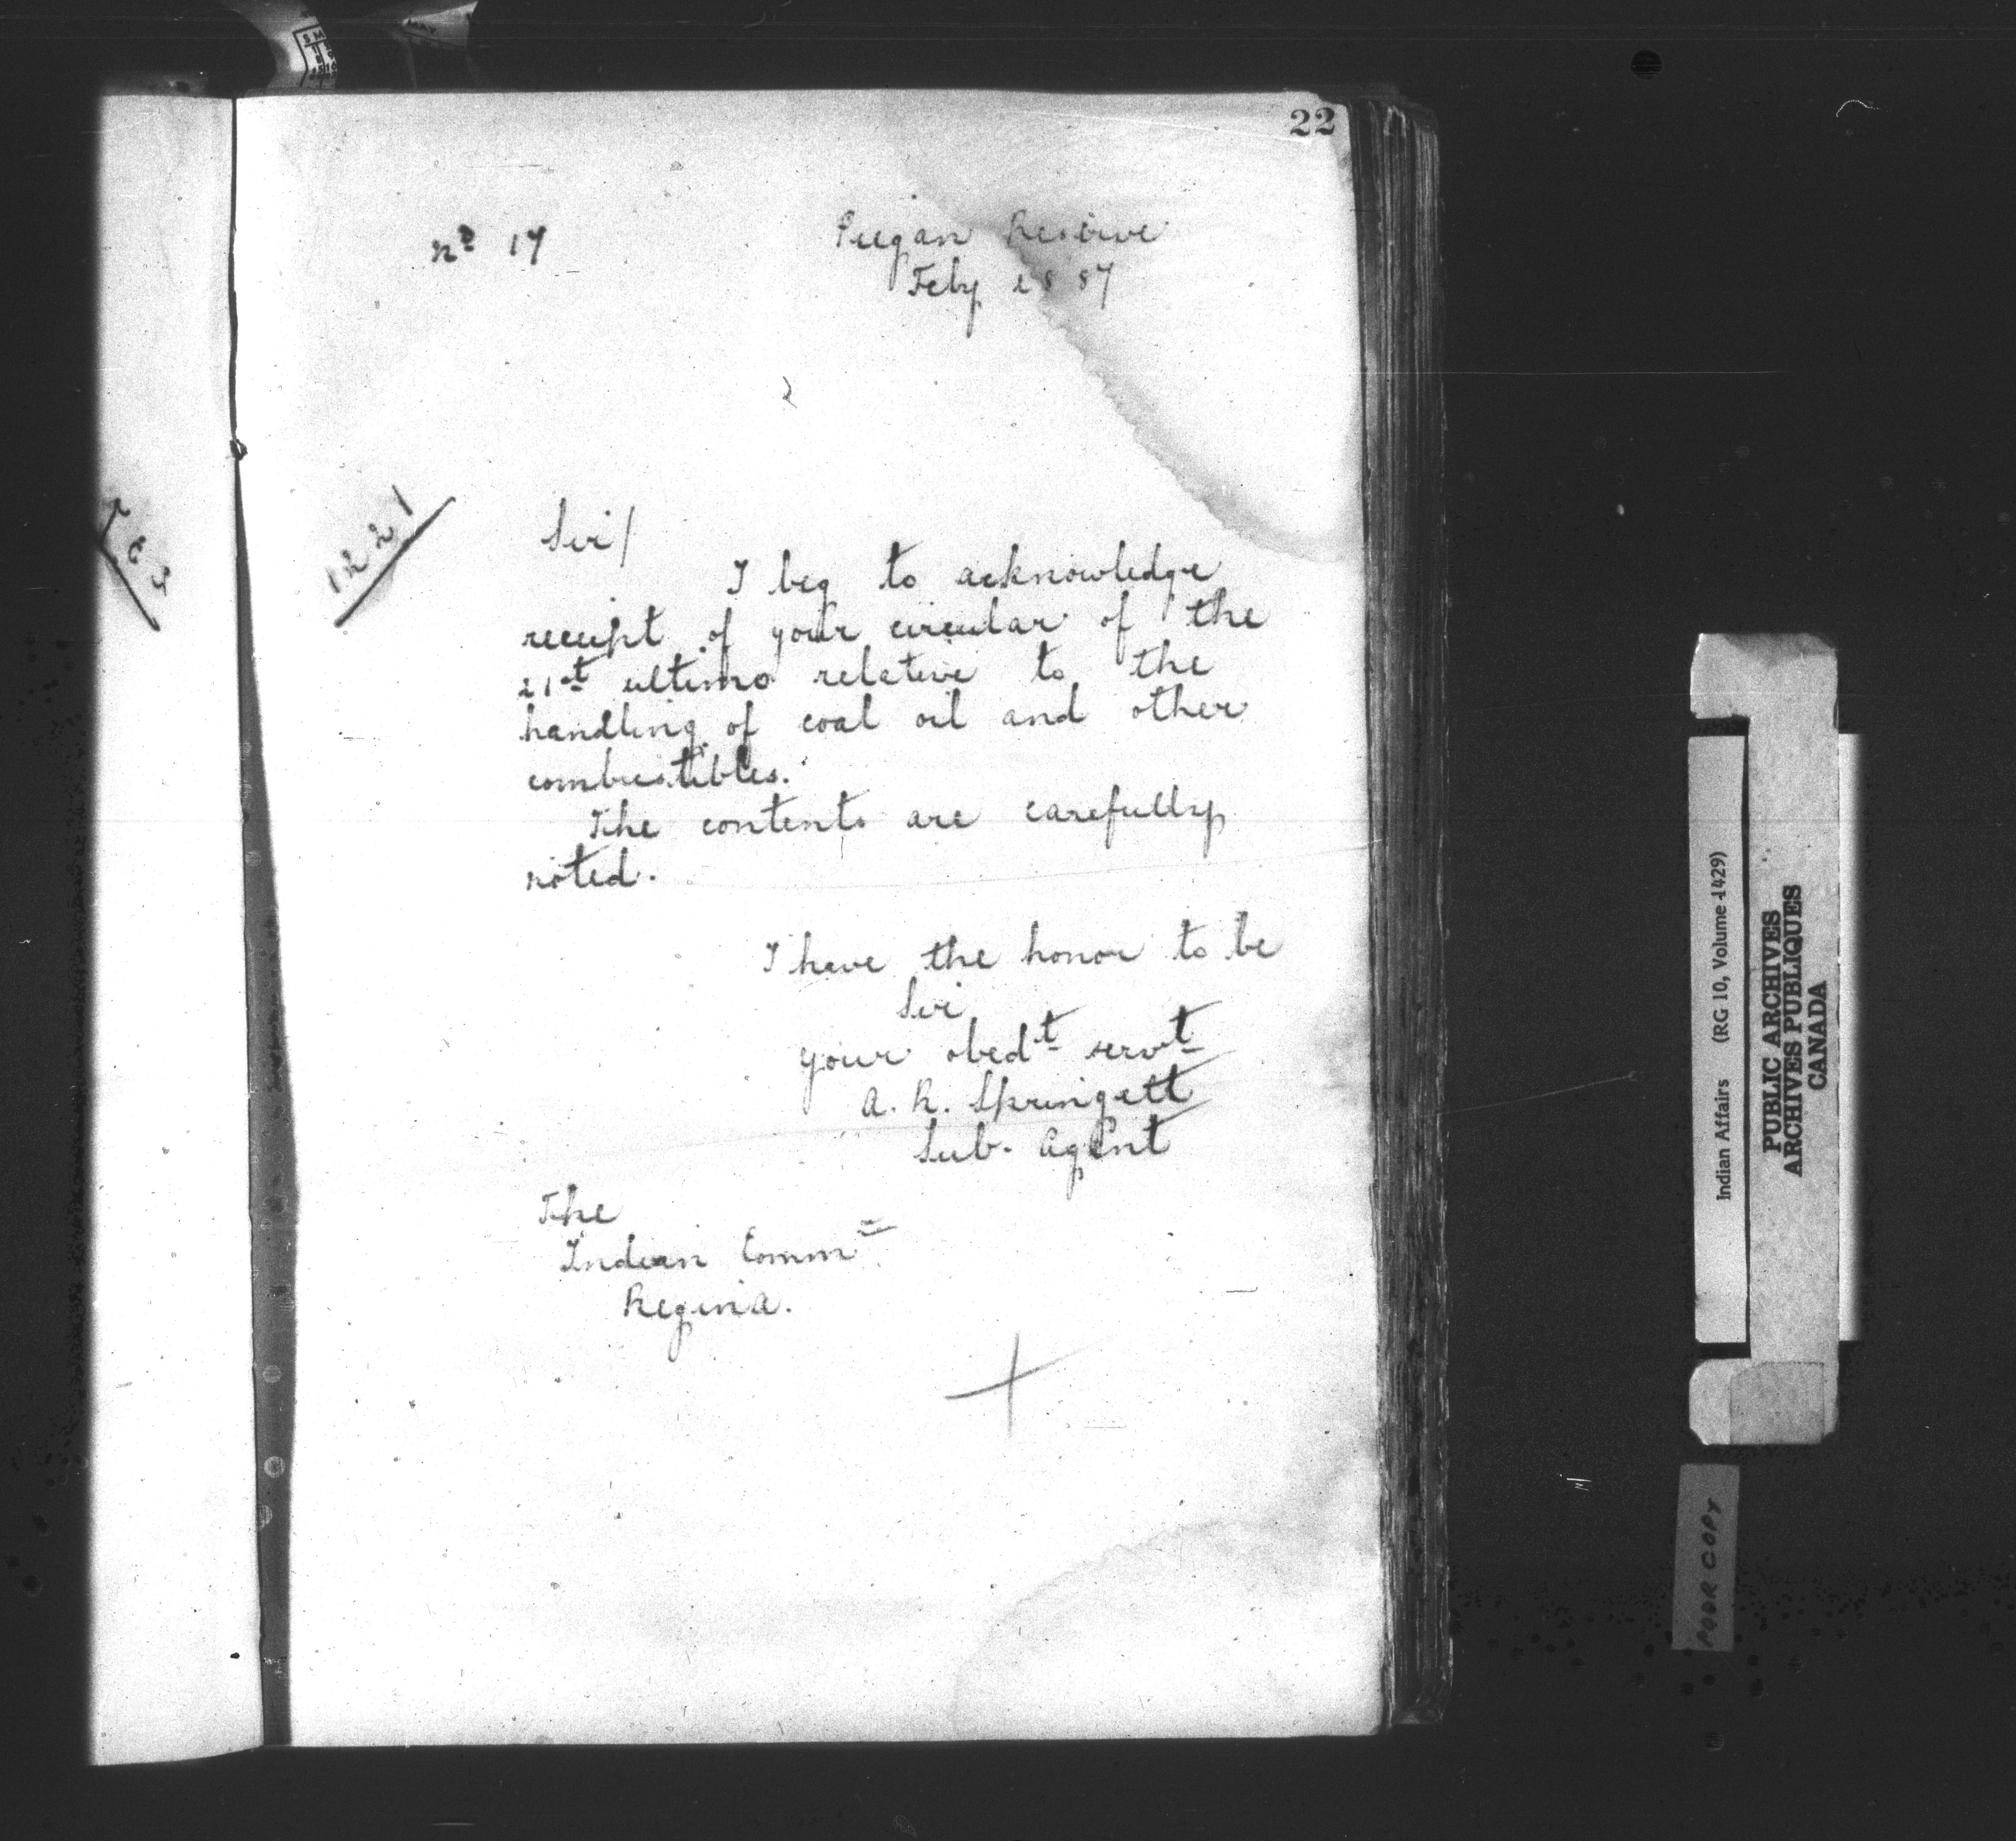 22
No 17
Peigan Reserve
Feby 28 87
1221
Sir/
I beg to acknowledge
receipt of your circular of the
21st ultimo relative to the
handling of coal oil and other
combustibles.
The contents are carefully
noted.
I have the honor to be
Sir
your obedt servt
A. R. Springett
Sub. Agent
The
Indian Commr
Regina.
Indian Affairs (RG 10, Volume 1429)
PUBLIC ARCHIVES
ARCHIVES PUBLIQUES
CANADA
POOR COPY